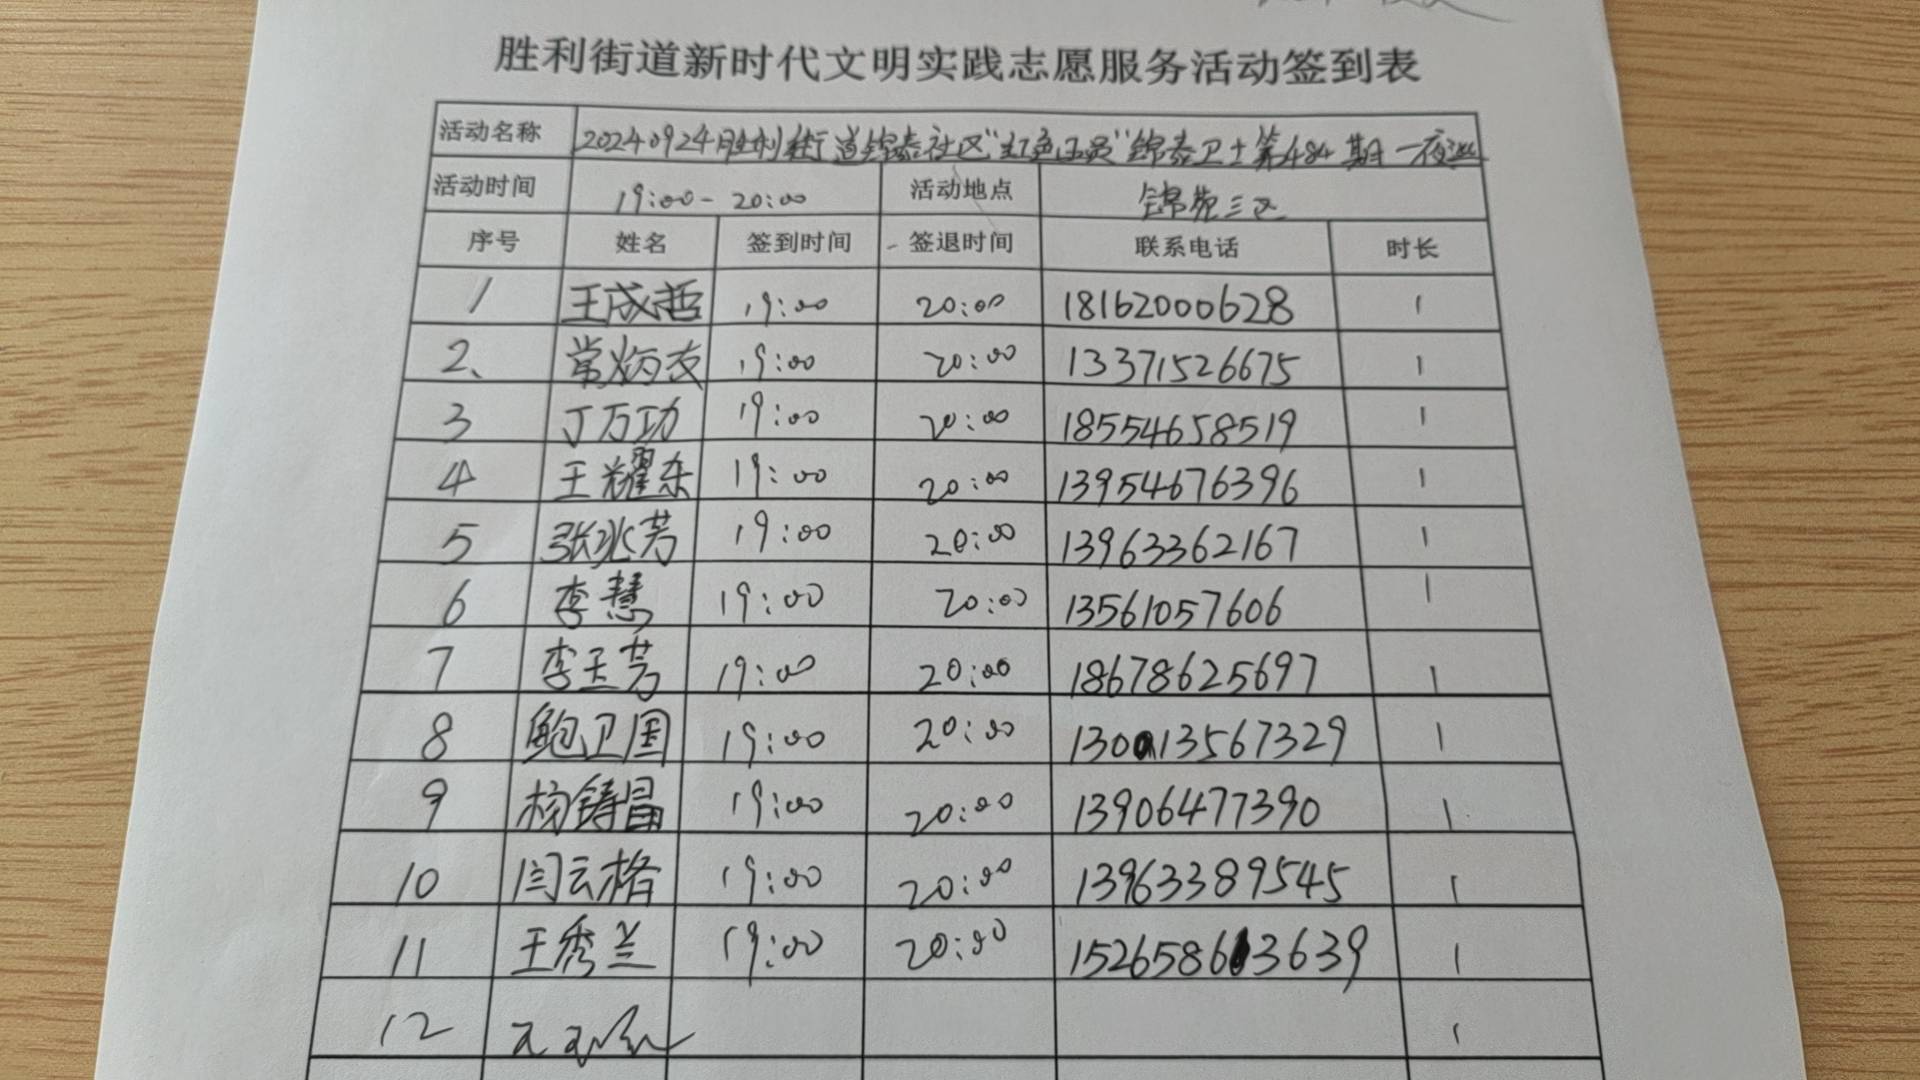 胜利街道新时代文明实践志愿服务活动签到表
活动名称 20240924胜利街道锦泰社区"红色区员"锦泰卫士第484期一夜巡
活动时间 19:00-20:00 活动地点 锦苑三区
序号 姓名 签到时间 签退时间 联系电话 时长
1 王成哲 19:00 20:00 18162000628 1
2、 常炳友 19:00 20:00 13371526675 1
3 丁万功 19:00 20:00 18554658519 1
4 王耀东 19:00 20:00 13954676396 1
5 张冰芳 19:00 20:00 13963362167 1
6 李慧 19:00 20:00 13561057606 1
7 李玉芳 19:00 20:00 18678625697 1
8 鲍卫国 19:00 20:00 13013567329 1
9 杨铸昌 19:00 20:00 13906477390 1
10 闫云格 19:00 20:00 13963389545 1
11 王秀兰 19:00 20:00 15265863639 1
12 1